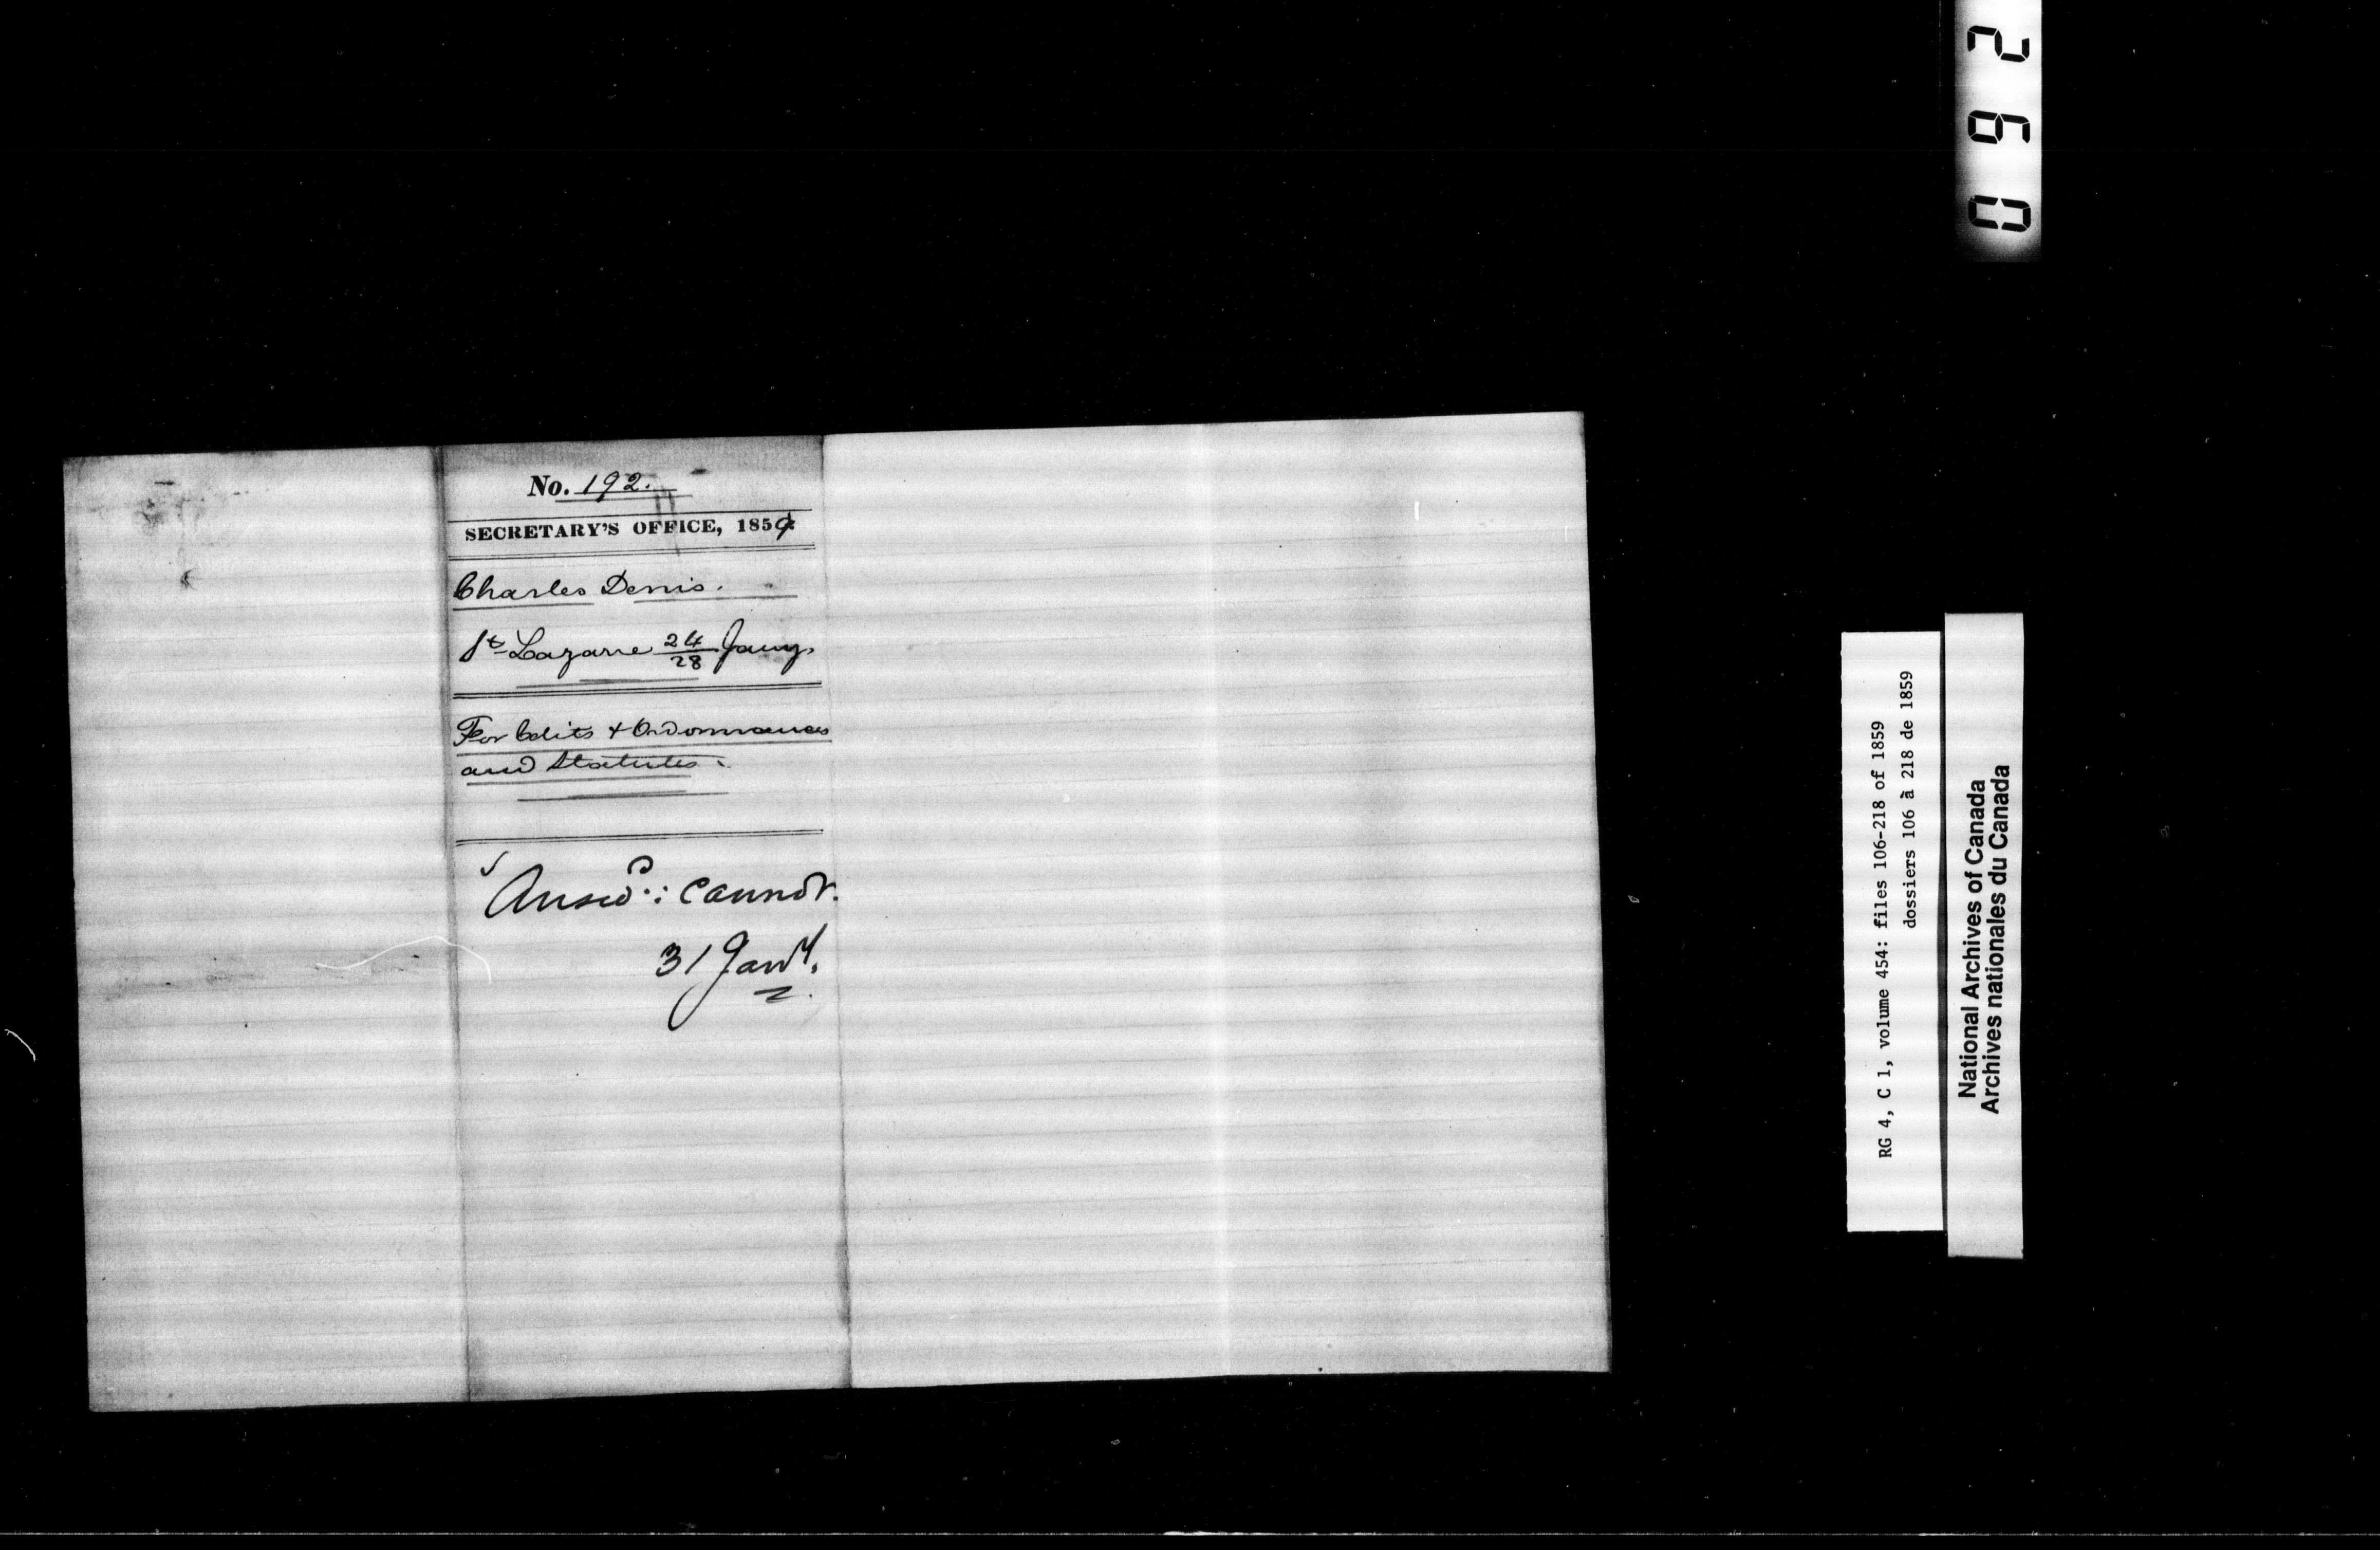 No. 192.
SECRETARY'S OFFICE, 1859.
Charles Denis.
St Lazarre 24/28 Jany.
For Edits & Ordonnances
and Statutes.
Answd.: Cannot.
31 Jany.
2 6 0
RG 4, C 1, volume 454: files 106-218 of 1859
dossiers 106 à 218 de 1859
National Archives of Canada
Archives nationales du Canada